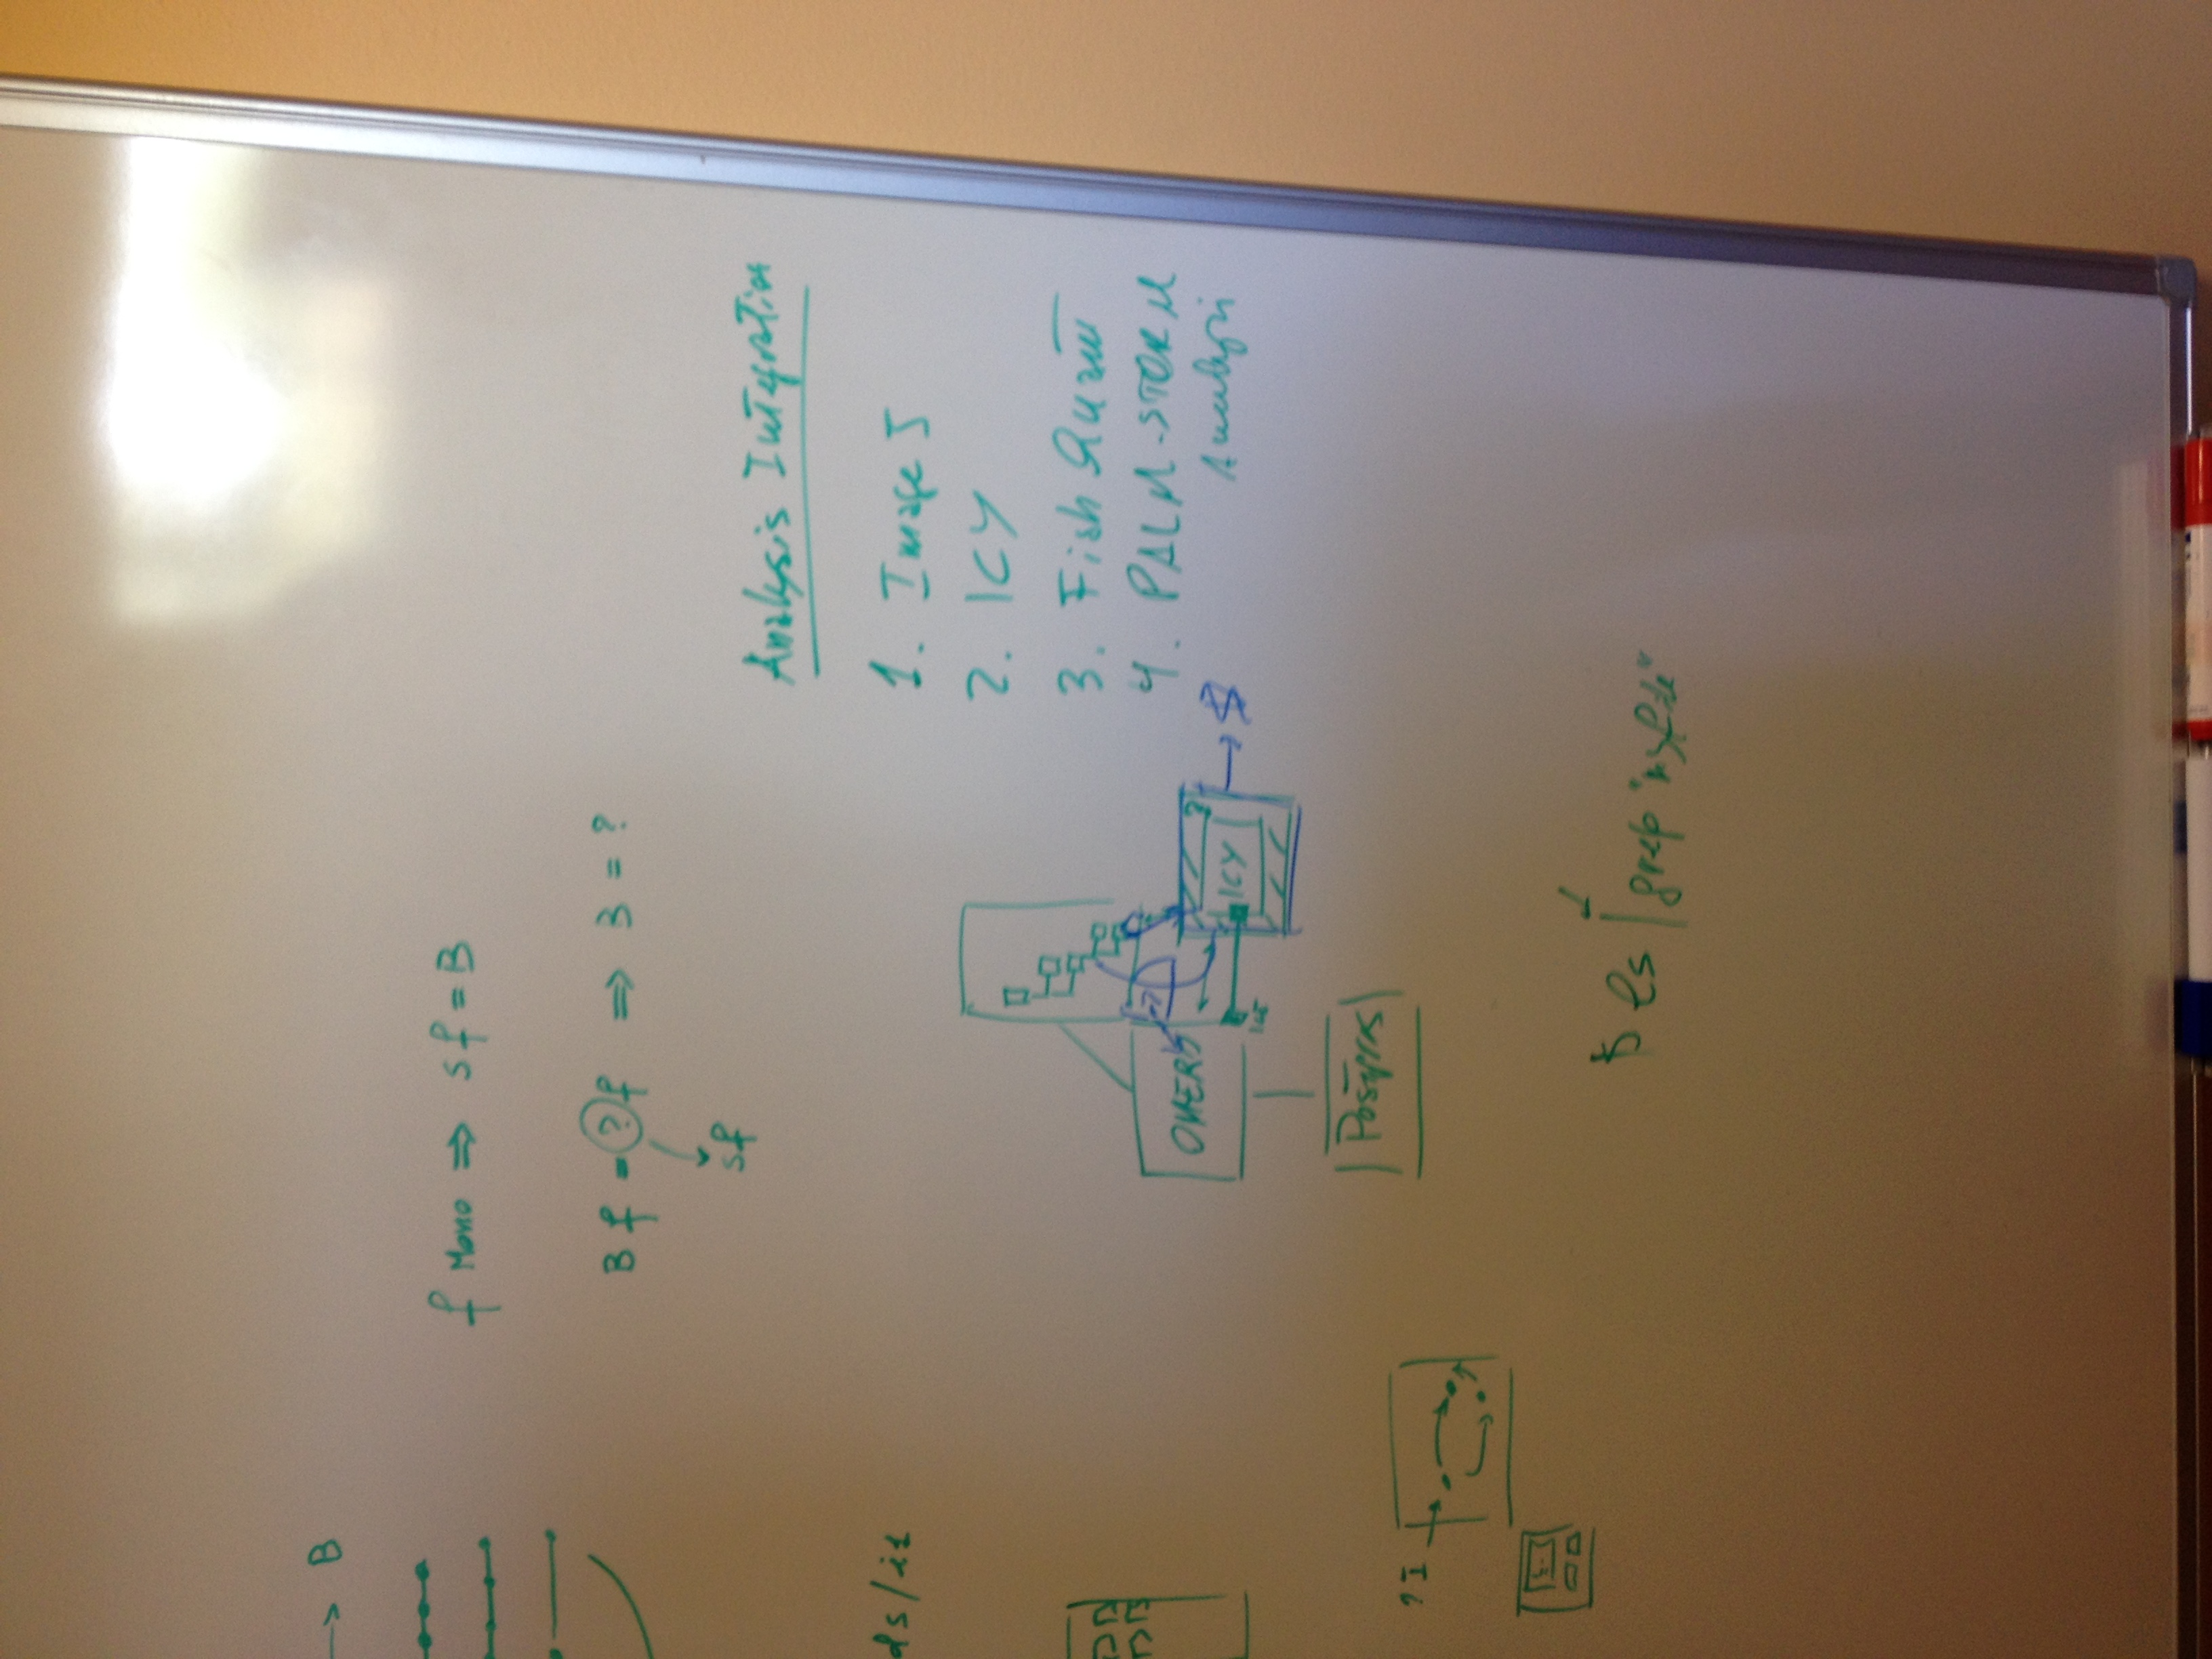 → B
f Mono ⇒ sf = B
B f = ? f ⇒ B = ?
sf
ds/it
Analysis Integration
1. Image J
2. ICY
3. Fish Quant
4. PALM-STORM
Analysis
OMERO
ICY
→ $
Postgres
I
$ ls | grep "myfile"